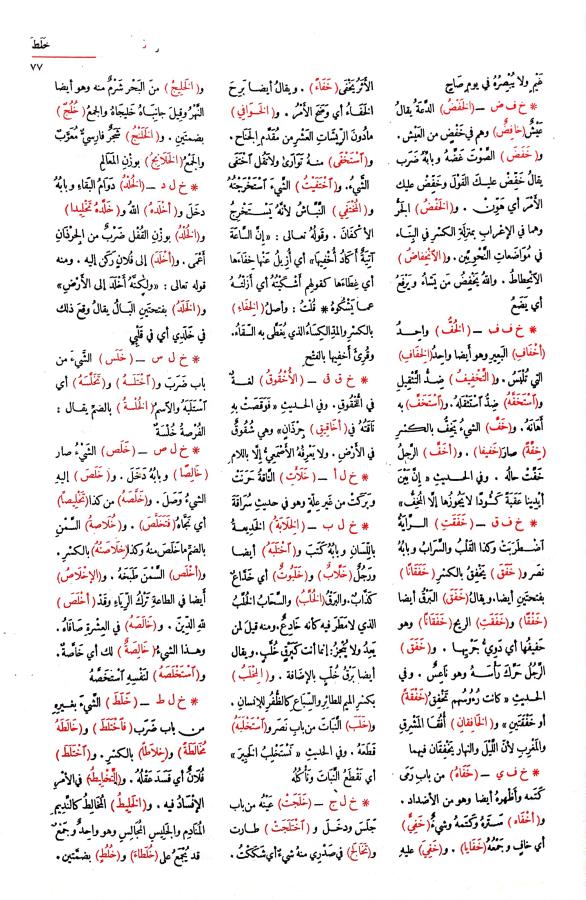 خلط
٧٧
غَيْمٍ ولا يُبْصِرُهُ في يومٍ صَاحٍ
* خ ف ض – (الخَفْضُ) الدَّعَةُ يقالُ
عَيْشٌ (خَافِضٌ) وهم في خَفْضٍ من العَيْش.
و(خَفَضَ) الصَّوْتَ غَضَّهُ وبابُهُ ضَرَبَ
يقالُ خَفِّضْ عليكَ القَوْلَ وخَفِّضْ عليك
الأَمْرَ أي هَوِّنْ. و(الخَفْضُ) الجَرُّ
وهما في الإعْرابِ بمنزلةِ الكَسْرِ في البِنَاءِ
في مُوَاضَعَاتِ النَّحْوِيِّين. و(الآنْخِفاضُ)
الآنْحِطاطُ. واللهُ يَخْفِضُ من يَشَاءُ ويَرْفَعُ
أي يَضَعُ
* خ ف ف – (الخُفُّ) واحِدُ
(أخْفَافِ) البَعِيرِ وهو أيضا واحدُ (الخِفَافِ)
التي تُلْبَسُ. و(التَّخْفِيفُ) ضِدُّ التَّثْقِيلِ
و(آسْتَخَفَّهُ) ضِدُّ آسْتَثْقَلَهُ. و(آسْتَخَفَّ) به
أَهَانَهُ. و(خَفَّ) الشيءُ يَخِفُّ بالكسرِ
(خِفَّةً) صارَ (خَفِيفا). و(أَخَفَّ) الرَّجُلُ
خَفَّتْ حالُهُ. وفي الحديثِ « إنَّ بَيْنَ
أيْدِينا عَقَبَةً كَئُودًا لا يَجُوزُها إلَّا المُخِفُّ»
* خ ف ق – (خَفَقَتِ) الرَّايةُ
آضْطَرَبَتْ وكذا القَلْبُ والسَّرابُ وبابُهُ
نصَر و(خَفَقَ) يَخْفِقُ بالكسْرِ (خَفَقَانًا)
بفتحتينِ أيضا. ويقالُ (خَفَقَ) البَرْقُ أيضا
(خَفْقًا) و(خَفَقَتِ) الرِّيحُ (خَفَقَانًا) وهو
حَفِيفُها أي دَوِيُّ جَرْيِها. و(خَفَقَ)
الرَّجُلُ حَرَّكَ رَأْسَهُ وهو ناعِسٌ. وفي
الحديثِ « كانت رُءُوسُهم تَخْفِقُ (خَفْقَةً)
أو خَفْقَتَيْنِ » و(الخَافِقَانِ) أُفُقَا المَشْرِقِ
والمَغْرِبِ لأَنَّ اللَّيْلَ والنهارَ يَخْفِقَانِ فيهما
* خ ف ي – (خَفَاهُ) من بابِ رَمَى
كَتَمَه وأظْهَرهُ أيضا وهو من الأضْداد.
و(أخْفَاهُ) سَتَرهُ وكَتَمَهُ وشيءٌ (خَفِيٌّ)
أي خافٍ و جَمْعُهُ (خَفَايا). و(خَفِيَ) عليهِ
الأَثَرُ يَخْفَى (خَفَاءً). ويقالُ أيضا بَرِحَ
الخَفَاءُ أي وَضَحَ الأَمْرُ. و(الخَوافِي)
مادُونَ الرِّيشاتِ العَشْرِ من مُقَدَّمِ الجَناحِ.
و(آسْتَخْفَى) منهُ تَوارَى ولا تَقُلِ آخْتَفَى
الشيءُ. و(آخْتَفَيْتُ) الشيءَ آسْتَخْرَجْتُهُ
و(المُخْتَفِي) النَّبَّاشُ لأنَّهُ يَسْتَخْرِجُ
الأكْفَانَ. وقولُهُ تعالى : « إنَّ السَّاعَةَ
آتِيَةٌ أكادُ أُخْفِيهَا» أي أُزِيلُ عَنْها خِفَاءَها
أي غِطَاءَها كقولهم أَشْكَيْتُهُ أي أَزَلْتُهُ
عما يَشْكُوهُ * قُلْتُ : وأصلُ (الخِفَاءِ)
بالكسرِ والمدِّ الكِسَاءُ الذي يُغَطَّى به السِّقَاءُ.
وقُرِئَ أَخْفِيها بالفتحِ
* خ ق ق – (الأُخْقُوقُ) لغةٌ
في اللُّخْقُوقِ. وفي الحديثِ «فَوَقَصَتْ بِهِ
ناقَتُهُ في (أخَاقِيقِ) جِرْذَانٍ» وهي شُقُوقٌ
في الأرْضِ. ولا يَعْرِفُهُ الأَصْمَعِيُّ إلَّا باللامِ
* خ ل أ – (خَلَأَتِ) النَّاقَةُ حَرَنَتْ
وبَرَكَتْ من غيرِ عِلَّةٍ وهو في حديثِ سُرَاقَةَ
* خ ل ب – (الخِلَابَةُ) الخَدِيعَةُ
باللِّسَانِ وبابُهُ كَتَبَ و(آخْتَلَبَهُ) أيضا
ورَجُلٌ (خَلَّابٌ) و(خَلَبُوتٌ) أي خَدَّاعٌ
كَذَّابٌ. والبَرْقُ (الخُلَّبُ) والسَّحابُ الخُلَّبُ
الذي لامَطَرَ فيهِ كأنه خادِعٌ. ومنه قيلَ لمن
يَعِدُ ولا يُنْجِزُ: إنما أنتَ كبَرْقٍ خُلَّبٍ. ويقالُ
أيضا بَرْقُ خُلَّبٍ بالإضافةِ. و(المِخْلَبُ)
بكسرِ الميمِ للطائرِ والسِّباعِ كالظُّفُرِ للإنسانِ.
و(خَلَبَ) النَّبَاتَ من بابِ نَصَرَ و(آسْتَخْلَبَهُ)
قَطَعَهُ. وفي الحديثِ «نَسْتَخْلِبُ الخَبِيرَ»
أي نَقْطَعُ النَّبَاتَ ونأكُلُهُ
* خ ل ج – (خَلَجَتْ) عَيْنُه من باب
جَلَسَ ودخَلَ و(آخْتَلَجَتْ) طارت
و(تَخَالَجَ) في صَدْرِي منه شيءٌ أي شَكَكْتُ.
و(الخَلِيجُ) منَ البَحْرِ شَرْمٌ منه وهو أيضا
النَّهْرُ وقيلَ جانِبَاهُ خَلِيجَاهُ والجمعُ (خُلُجٌ)
بضمتينِ. و(الخَلَنْجُ) شَجَرٌ فارسيٌّ مُعَرَّبٌ
والجمعُ (الخَلَانِجُ) بوزْنِ المَعَالِمِ
* خ ل د – (الخُلْدُ) دَوَامُ البَقَاءِ وبابُهُ
دخَلَ و(أخْلَدَهُ) اللهُ و(خَلَّدَهُ تَخْلِيدا)
و(الخُلْدُ) بوزْنِ القُفْلِ ضَرْبٌ من الجِرْذَانِ
أعْمَى. و(أَخْلَدَ) إلى فُلانٍ رَكَنَ إليه. ومنه
قوله تعالى : «ولَكِنَّهُ أَخْلَدَ إلَى الأَرْضِ»
و(الخَلَدُ) بفتحتينِ البَالُ يقالُ وقَعَ ذلك
في خَلَدِي أي في قَلْبِي
* خ ل س – (خَلَسَ) الشيءَ من
باب ضَرَبَ و(آخْتَلَسَهُ) و(تَخَلَّسَهُ) أي
آسْتَلَبَهُ والآسمُ (الخُلْسَةُ) بالضمِّ يقالُ :
الفُرْصةُ خُلْسَةٌ
* خ ل ص – (خَلَصَ) الشيءُ صار
(خَالِصًا) و بابُهُ دَخَلَ. و(خَلَصَ) إليهِ
الشيءُ وَصَلَ. و(خَلَّصَهُ) من كذا (تَخْلِيصًا)
أي نَجَّاهُ (فَتَخَلَّصَ). و(خُلَاصةُ) السَّمْنِ
بالضمِّ ماخَلَصَ منه وكذا (خِلَاصَتُهُ) بالكسرِ.
و(أَخْلَصَ) السَّمْنَ طَبَخَهُ. و(الإخْلَاصُ)
أيضا في الطاعةِ تَرْكُ الرِّيَاءِ وقَدْ (أخْلَصَ)
للهِ الدِّينَ. و(خَالَصَهُ) في العِشْرةِ صَافَاهُ.
وهذا الشيءُ (خَالِصَةٌ) لك أي خَاصَّةٌ.
و(آسْتَخْلَصَهُ) لنفسِهِ آسْتَخَصَّهُ
* خ ل ط – (خَلَطَ) الشيءَ بغيرِهِ
من باب ضَرَبَ (فَآخْتَلَطَ) و(خالَطَهُ
مُخَالَطَةً) و(خِلَاطًا) بالكسرِ. و(آخْتَلَطَ)
فُلَانٌ أي فَسَدَ عَقْلُهُ. و(التَّخْلِيطُ) في الأمرِ
الإفسادُ فيه. و(الخَلِيطُ) المُخَالِطُ كالنَّدِيمِ
المُنَادِمِ والجَلِيسِ المُجَالِسِ وهو واحِدٌ و جَمْعٌ
قد يُجْمَعُ على (خُلَطاءَ) و(خُلُطٍ) بضمّتين.